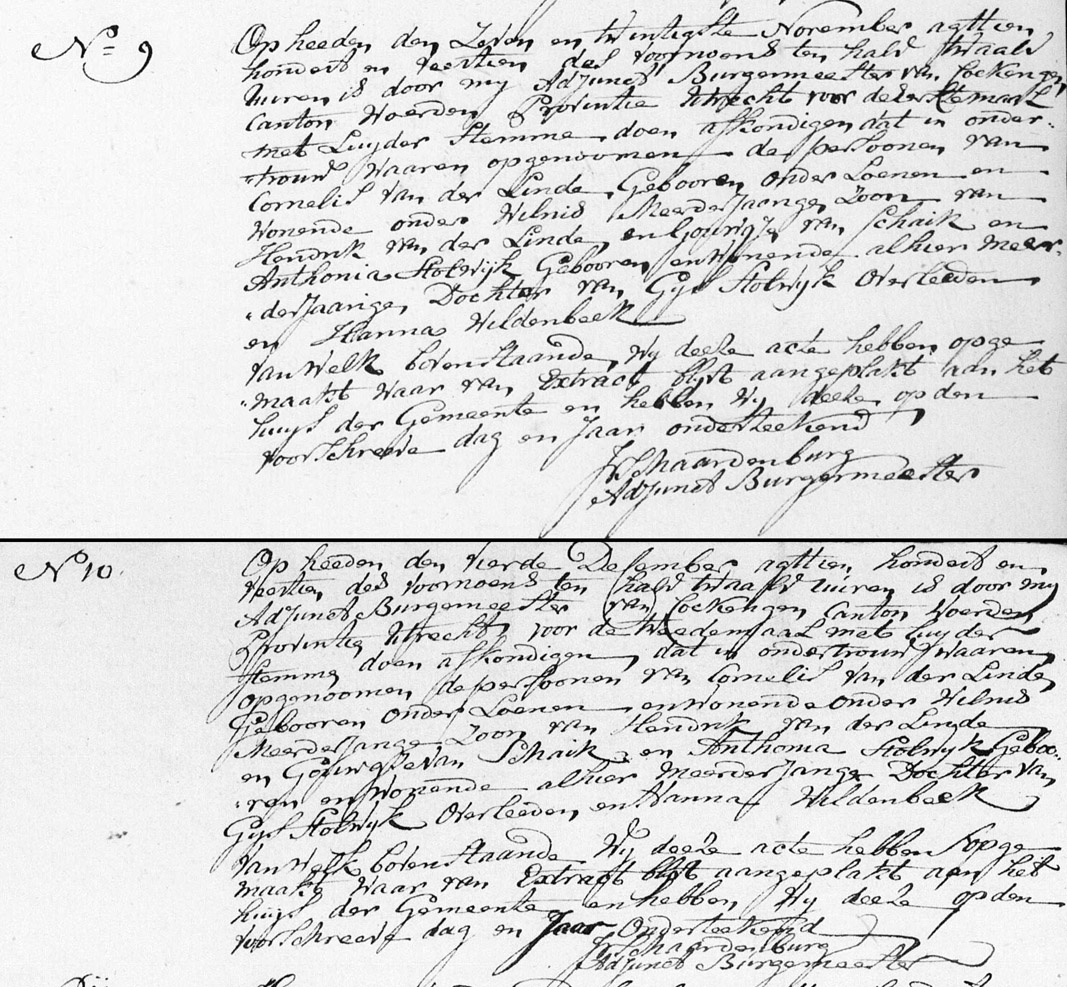 No 9
Op heeden den Zeven en twintigste November agttien
hondert en veertien des voormoens ten half twaalf
uuren is door my Adjunct Burgermeester van Cockengen
Canton Woerden Provintie Utrecht voor de Eerstemaal
met Luyder Stemme doen afkondigen dat in onder-
trouw waaren opgenoomen de persoonen van
Cornelis van der Linde Gebooren onder Loenen en
Wonende onder Wilnis Meerderjaange Zoon van
Hendrik van der Linde en Gouwtje van Schaik en
Anthonia Stolwijk Gebooren en Wonende alhier Meer-
derjaange Dochter van Gijs Stolwyk Overleeden
en Hanna Wildenbeek
van Welk bovenstaande Wy deeze acte hebben opge
maakt Waar van Extract blyft aangeplakt aan het
huys der Gemeente en hebben Wy deeze op den
voorschreeve dag en Jaar onderteekend
Schaardenburg
Adjunct Burgermeester
No 10
Op heeden den vierde December agttien hondert en
Veertien des voormoens ten half twaalf uuren is door my
Adjunct Burgemeester van Cockengen Canton Woerden
Provintie Utrecht voor de tweedemaal met Luyder
Stemme doen afkondigen dat in ondertrouw waaren
opgenoomen de persoonen van Cornelis van der Linde
Gebooren onder Loenen en Wonende onder Wilnis
Meerderjange Zoon van Hendrik van der Linde
en Gouwtje van Schaik en Anthonia Stolwyk Geboo-
ren en Wonende alhier Meerderjange Dochter van
Gijs Stolwyk Overleeden en Hanna Wildenbeek
van Welk bovenstaande Wy deeze acte hebben opge
maakt Waar van Extract blyft aangeplakt aan het
huys der Gemeente en hebben Wy deeze op den
voorschreeve dag en Jaar Onderteekend
Schaardenburg
Adjunct Burgermeester